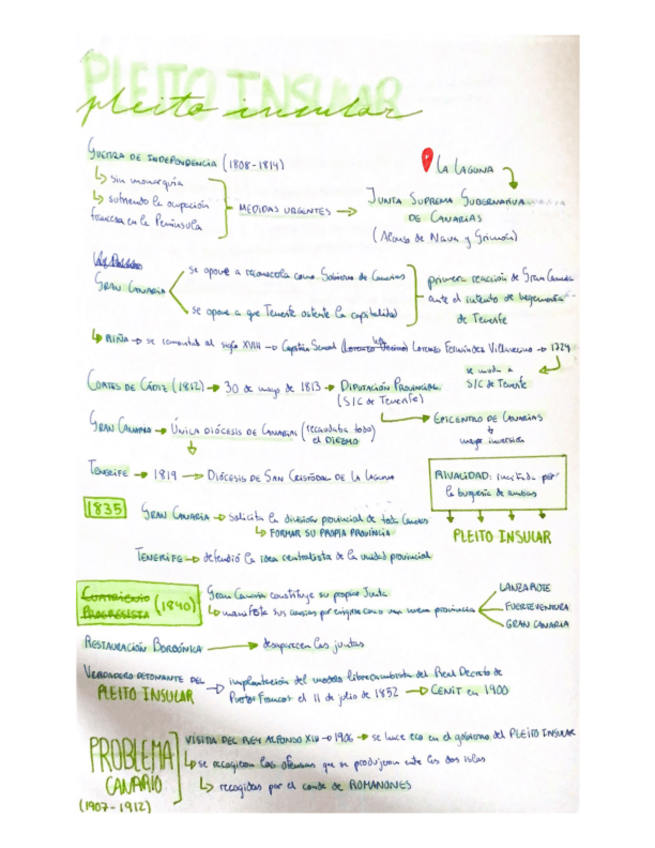 PLEITO INSULAR
pleito insular
GUERRA DE INDEPENDENCIA (1808-1814)
↳ sin monarquía
↳ sufriendo la ocupación
francesa en la Península
MEDIDAS URGENTES →
LA LAGUNA
JUNTA SUPREMA GUBERNATIVA
DE CANARIAS
(Alonso de Nava y Grimón)
GRAN CANARIA
se opone a reconocerla como Gobierno de Canarias
se opone a que Tenerife ostente la capitalidad
primera reacción de Gran Canaria
ante el intento de hegemonía
de Tenerife
↳ RIÑA → se remonta al siglo XVIII → Capitán General Lorenzo Fernández Villavicencio → 1724
se muda a
S/C de Tenerife
CORTES DE CÁDIZ (1812) → 30 de mayo de 1813 → DIPUTACIÓN PROVINCIAL
(S/C de Tenerife)
EPICENTRO DE CANARIAS
mayor inversión
GRAN CANARIA → ÚNICA DIÓCESIS DE CANARIAS (recaudaba todo
el DIEZMO
TENERIFE → 1819 → DIÓCESIS DE SAN CRISTÓBAL DE LA LAGUNA
RIVALIDAD: incitada por
la burguesía de ambas
PLEITO INSULAR
1835
GRAN CANARIA → solicita la división provincial de toda Canarias
↳ FORMAR SU PROPIA PROVINCIA
TENERIFE → defendió la idea centralista de la unidad provincial
PROGRESISTA (1840)
Gran Canaria constituye su propia Junta
↳ manifiesta sus ansias por erigirse como una nueva provincia
LANZAROTE
FUERTEVENTURA
GRAN CANARIA
RESTAURACIÓN BORBÓNICA → desaparecen las juntas
VERDADERO DETONANTE DEL
PLEITO INSULAR
→ implantación del modelo librecambista del Real Decreto de
Puertos Francos el 11 de julio de 1852 → CENIT en 1900
PROBLEMA
CANARIO
(1907-1912)
VISITA DEL REY ALFONSO XIII → 1906 → se hace eco en el gobierno del PLEITO INSULAR
↳ se recogieron las ofensas que se produjeron entre las dos islas
↳ recogidas por el conde de ROMANONES